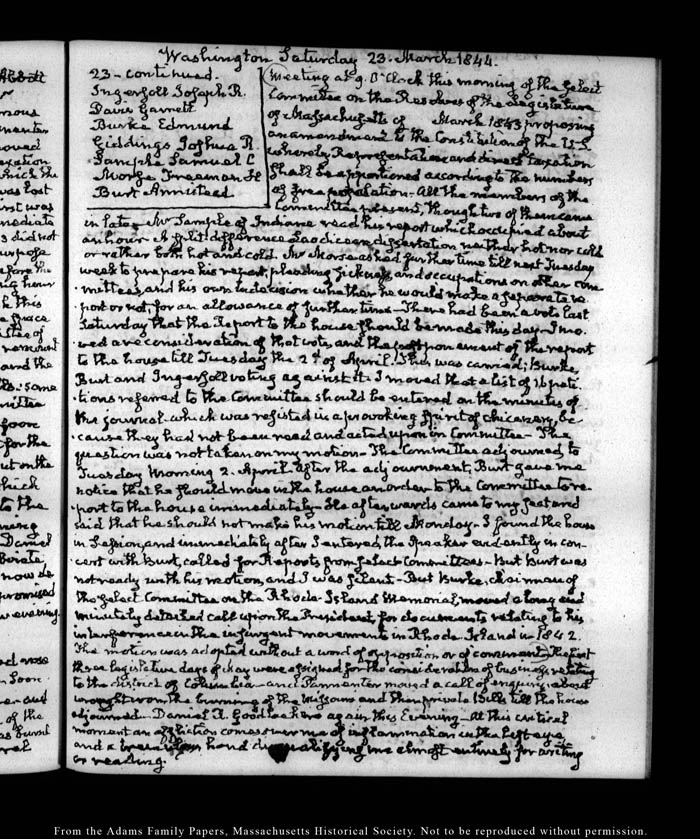 Washington Saturday 23. March 1844.
23 - continued.
Ingersoll Joseph R.
Davis Garrett
Burke Edmund
Giddings Joshua R.
Sample Samuel C
Morse Freeman H
Burt Armistead
Meeting at 9. O'Clock this morning of the Select
Committee on the Resolves of the Legislature
of Massachusetts of March 1843 proposing
an amendment to the Constitution of the U.S.
whereby Representation and direct taxation
shall be apportioned according to the numbers
of free population - All the members of the
Committee present, though two of them came
in late. Mr Sample of Indiana read his report which occupied about
an hour. A split difference Laodicean dissertation neither hot nor cold
or rather both hot and cold. Mr Morse asked further time till next Tuesday
week to prepare his report, pleading sickness, and occupations on other com-
mittees, and his own indecision whether he would make a separate re-
port or not, for an allowance of further time - There had been a vote last
Saturday that the Report to the house should be made this day - I mo-
ved a reconsideration of that vote, and the postponement of the report
to the house till Tuesday the 2d of April. This was carried; Burke,
Burt and Ingersoll voting against it. I moved that a list of 16 peti-
tions referred to the Committee should be entered on the minutes of
the journal. which was resisted in a provoking spirit of chicanery, be-
cause they had not been read and acted upon in Committee - The
question was not taken on my motion - The Committee adjourned to
Tuesday Morning 2. April. After the adjournment, Burt gave me
notice that he should move in the house an order to the Committee to re-
port to the house immediately - He afterwards came to my seat and
said that he should not make his motion till Monday. I found the house
in Session, and immediately after I entered, the Speaker evidently in con-
cert with Burt, called for Reports from Select Committees - But Burt was
not ready with his motion, and I was silent - But Burke, chairman of
the Select Committee on the Rhode-Island Memorial, moved a long and
minutely detailed call upon the President, for documents relating to his
interference in the insurgent movements in Rhode Island in 1842.
The motion was adopted without a word of opposition or of comment. The first
three legislative days of May were assigned for the consideration of business relating
to the district of Columbia - and Parmenter moved a call of enquiry about
wrought iron the burning of the Missouri and then private Bills till the house
adjourned - Daniel R. Goodloe here again this Evening - At this critical
moment an affliction comes over me of inflammation in the left eye,
and a hand disqualifying me almost entirely for writing
or reading.
From the Adams Family Papers, Massachusetts Historical Society. Not to be reproduced without permission.